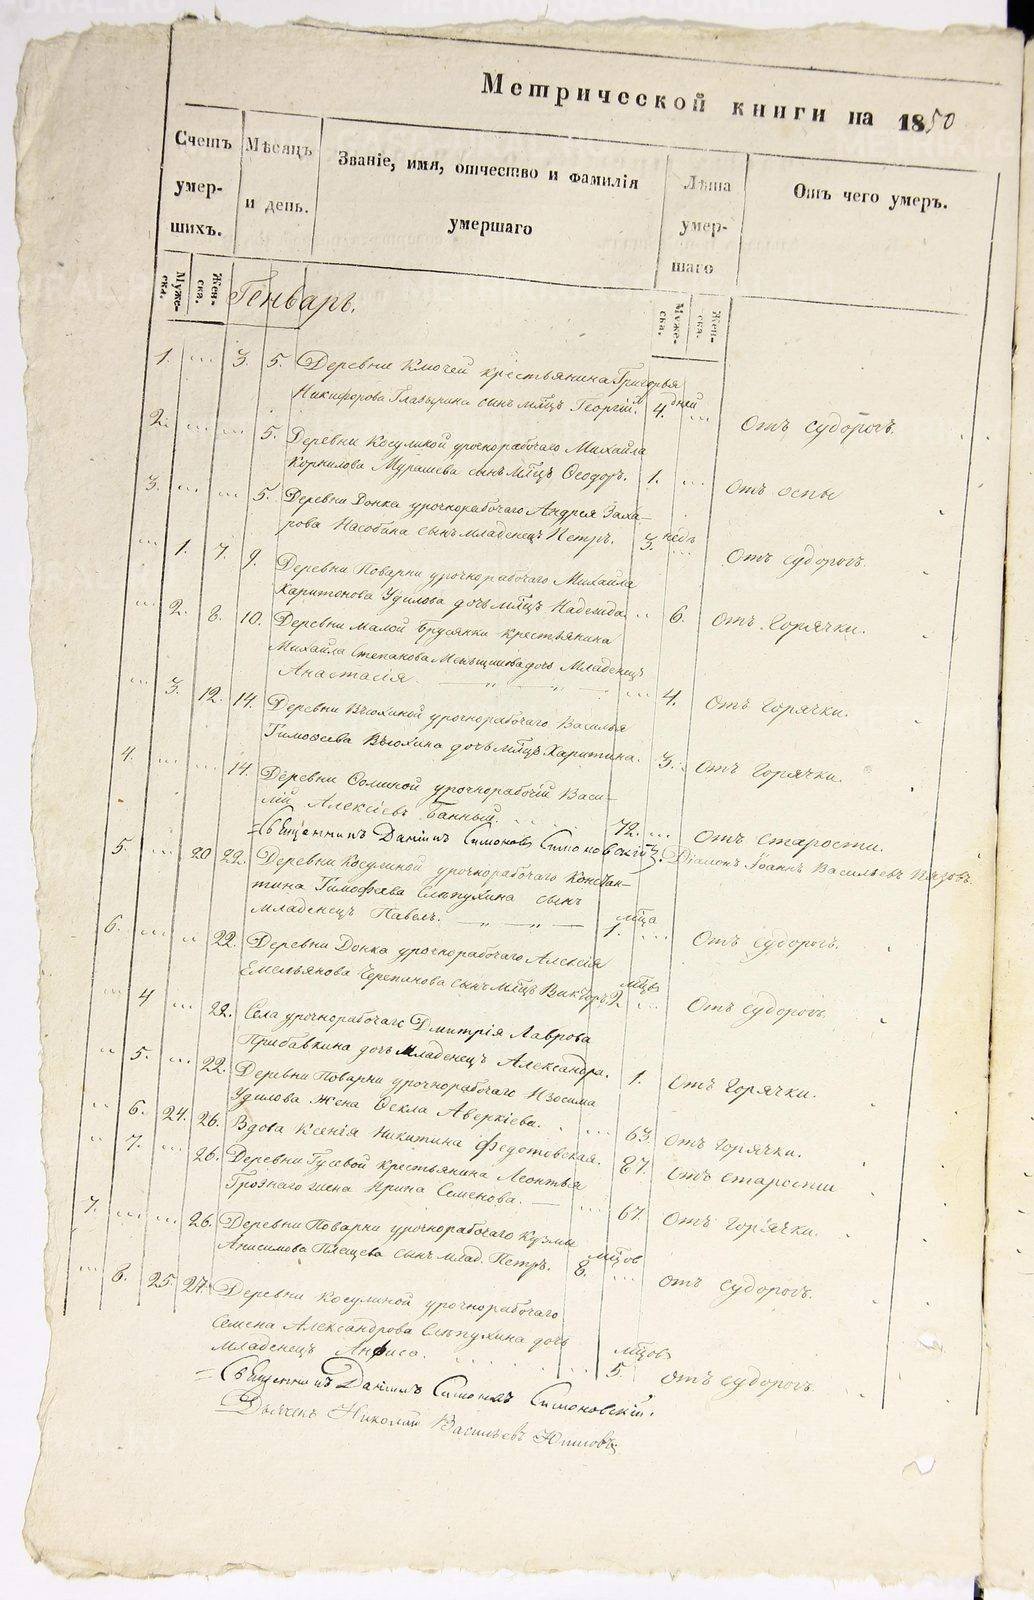 Метрической книги на 1850
Счетъ умер-шихъ.
Мѣсяцъ и день.
Званіе, имя, отчество и фамилія умершаго
Лѣта умер-шаго
Отъ чего умеръ.
Муже-ска.
Жен-ска.
Генварь.
Муже-ска.
Жен-ска.
1. ... 3. 5. Деревни Ключей крестьянина Григорья
Никифорова сынъ млцъ Георгій. 4. дней ... Отъ судорогъ.
2. ... ... 5. Деревни Косулиной урочнорабочаго Михайла
Корнилова Мурашева сынъ млцъ Ѳеодоръ. 1. ... Отъ оспы
3. ... ... 5. Деревни Донка урочнорабочаго Андрея Заха-
рова Насобина сынъ младенецъ Петръ. 3. недѣ ... Отъ судорогъ.
... 1. 7. 9. Деревни Поварни урочнорабочаго Михайла
Харитонова Удилова дочь млцъ Надежда. ... 6. Отъ горячки.
... 2. 8. 10. Деревни Малой Брусянки крестьянина
Михайла Степанова дочь Младенецъ
Анастасія. ... 4. Отъ горячки.
... 3. 12. 14. Деревни Вьюхиной урочнорабочаго Василья
Тимофеева Вьюхина дочь млцъ Харитина. 3. Отъ горячки.
4. ... ... 14. Деревни урочнорабочій Васи-
лій Алексіевъ Банный. 72. ... Отъ старости.
Священникъ Даніилъ Симоновъ Симоновскій. Діаконъ Іоаннъ Васильевъ
5. ... 20 22. Деревни Косулиной урочнорабочаго Констан-
тина Тимофеева Слѣпухина сынъ
младенецъ Павелъ. 1. мца ... Отъ судорогъ.
6. ... ... 22. Деревни Донка урочнорабочаго Алексія
Емельянова Черепанова сынъ млцъ Викторъ. 2. мцы ... Отъ судорогъ.
... 4 ... 22. Села урочнорабочаго Дмитрія Лаврова
Прибавкина дочь младенецъ Александра. 1. Отъ горячки.
... 5. ... 22. Деревни Поварни урочнорабочаго Изосима
Удилова жена Ѳекла Аверкіева. ... 63. Отъ горячки.
... 6. 24. 26. Вдова Ксенія Никитина Федотовская. 87. Отъ старости
... 7. ... 26. Деревни Гусевой крестьянина Леонтья
Грознаго жена Ирина Семенова. ... 67. Отъ горячки.
7. ... ... 26. Деревни Поварни урочнорабочаго Кузмы
Анисимова сынъ млад. Петръ. 8. мцов ... Отъ судорогъ.
... 8. 25. 27. Деревни Косулиной урочнорабочаго
Семена Александрова Слѣпухина дочь
младенецъ Анфиса. ... 5. мцов Отъ судорогъ.
Священникъ Даніилъ Симоновъ Симоновскій.
Дьячекъ Николай Васильевъ